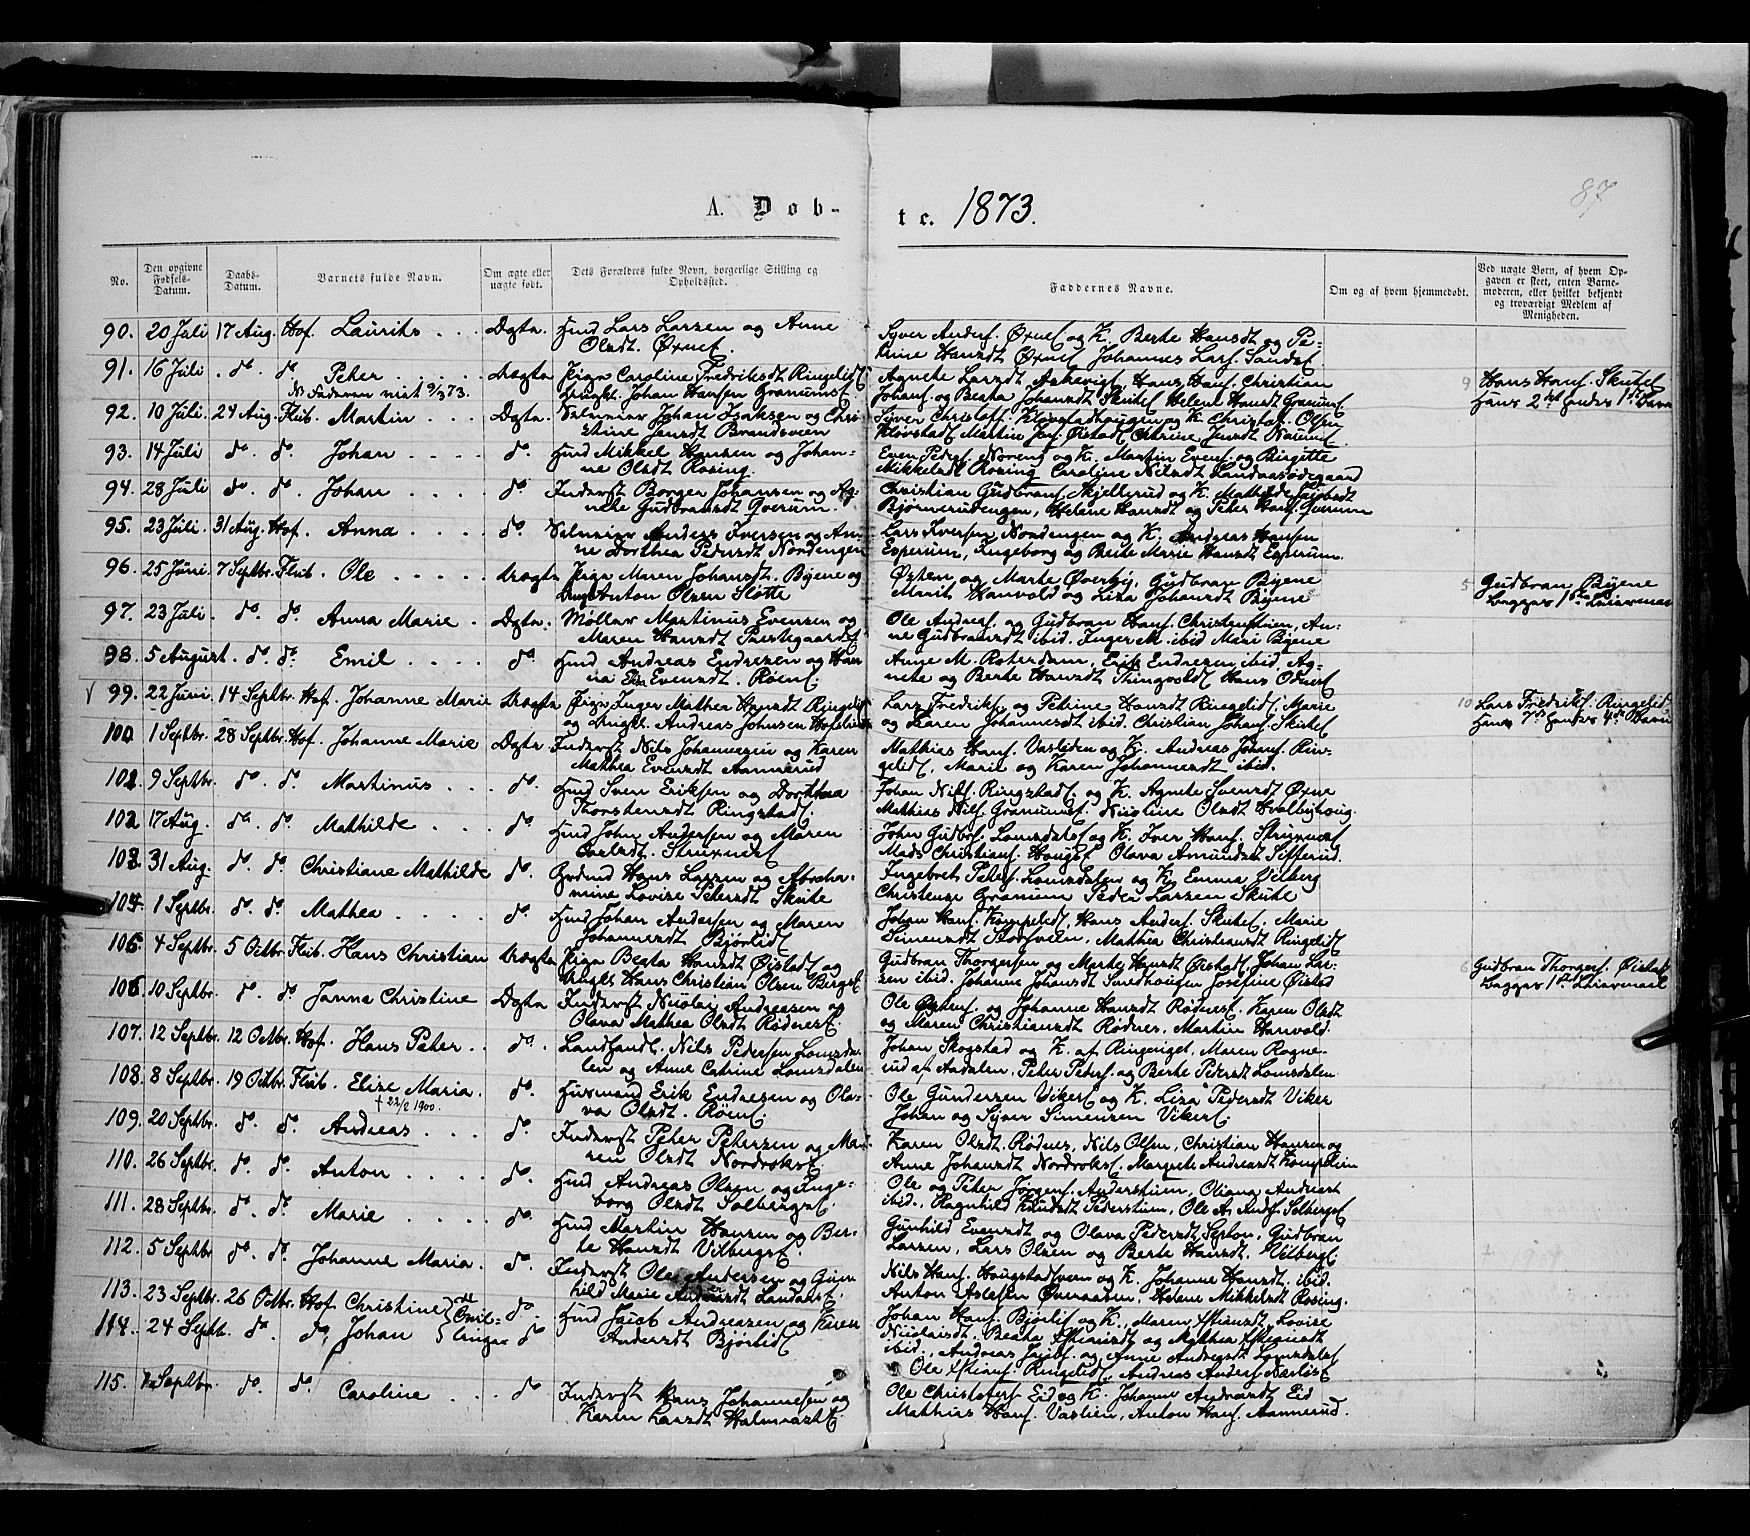 87
A. Døb-
te. 1873.
No.
Den opgivne Fødsels-Datum.
Daabs-Datum.
Barnets fulde Navn.
Om ægte eller uægte født.
Dets Forældres fulde Navn, borgerlige Stilling og Opholdssted.
Faddernes Navne.
Om og af hvem hjemmedøbt.
Ved uægte Børn, af hvem Opgaven er skeet, enten Barnemoderen, eller hvilket bekjendt og troværdigt Medlem af Menigheden.
90. 20 Juli 17 Aug. Hof. Laurits . . . Ægte. Husmd Lars Larsen og Anne
Olsdt. Øxne
Syver Anders. Øxne og K. Berte Hansdt og Pe-
trine Hansdt Øxne Johannes Lars. Sande
91. 16 Juli . do. do Peter . . . . Uægte Pige Caroline Fredriksdt Ringelid
NB. Faderen viet 9/3 73. Ungk. Johan Hansen Granum
Agnete Larsdt Askevig, Hans Hans. Christian
Johans. og Beata Johansdt Skute Helene Hansdt Granum
9 Hans Hans. Skute
Hans 2det hendes 1ste Barn
92. 10 Juli. 24 Aug. Flub. Martin . . . Ægte. Selveier Johan Isaksen og Chri-
stine Jensdt Brandsveen
Syver Christoff. Klovstadhaugen og K. Christof. Olsen
Klovstad, Martin Jens. Øistad, Cathrine Jensdt
93. 14 Juli do. do. Johan . . . . do. Husmd Mikkel Hansen og Johan-
ne Olsdt Rosing.
Even Peders. og K. Martin Evens. og Birgitte
Mikkelsdt Rosing Caroline Nilsdt Landaasødegaard
94. 28 Juli do. do. Johan . . . . do Inderst Borger Johansen og Ag-
nete Gudbransdt Qverum.
Christian Gudbrans. Skjellerud og K. Mathilde Jacobsdt
Bjørnerudengen, Helene Hansdt og Peter Hans. Qverum
95. 23 Juli. 31 Aug. Hof. Anna . . . . do. Selveier Anders Iversen og An-
ne Dorthea Pedersdt Nordengen
Lars Iversen Nordengen og K. Andreas Hansen
Esperum, Ingeborg og Berte Marie Hansdt Esperum.
96. 25 Juni. 7 Septbr. Flub. Ole . . . . . Uægte Pige Maren Johansdt. Bjene og
Ungk. Anton Olsen Slotte
Østen og Marte Øverby, Gudbran Bjene
Marit Hanvold og Lisa Johansdt Bjene
5 Gudbran Bjene
Begges 1ste Leiermaal
97. 23 Juli. do. do. Anna Marie . Ægte. Møller Martinus Evensen og
Maren Hansdt Præstegaard
Ole Anders. og Gudbran Hans. Christenstuen, An-
ne Gudbransdt ibid. Inger M. ibid Mari Bjene
98. 5 August. do. do. Emil . . . . do Husmd Andreas Endresen og Han-
na Evensdt. Røen
Anne M. Roterdam, Erik Endresen ibid. Ag-
nete og Berte Hansdt Thingvold, Hans
√ 99. 22 Juni 14 Septbr. Hof. Johanne Marie Uægte Pige Inger Mathea Hansdt Ringelid
og Ungk. Andreas Johnsen
Lars Fredriks. og Petrine Hansdt Ringelid, Marie
og Karen Johannesdt ibid. Christian Johans. Skute
10 Lars Fredriks. Ringelid
Hans 7de hendes 4de Barn
100. 1 Septbr. 28 Septbr. Hof. Johanne Marie Ægte Inderst Nils Johannesen og Karen
Mathea Evensdt Aannerud
Mathias Hans. Vasliden og K. Andreas Johans. Rin-
gelid, Marie og Karen Johannesdt ibid.
101. 9 Septbr. do. do. Martinus . . . do. Husmd Sven Eriksen og Dorthea
Thorstensdt Ringstad.
Johan Nils. Ringstad og K. Agnete Svensdt Øxne
Mathias Nils. Granum. Nicoline Olsdt Hvalbybovig.
102 17 Aug. do. do. Mathilde . . do Husmd John Andersen og Maren
Struxne
John Gudbr. Lomsdal og K. Iver Hans. Struxne
Mads Christians. Houg Olava Amundsdt Sifferud.
103. 31 Aug. do do. Christiane Mathilde do. Hans Larsen og Abraha-
mine Lovise Petersdt Skute
Ingebret Peters. Lomsdalen og K. Emma Øieberg
Christense Granum Peder Larsen Skute
104. 1 Septbr. do. do. Mathea . . . . do Husmd Johan Andersen og Maren
Johannesdt Bjørlid
Johan Hans. Kompelid, Hans Anders. Skute. Marie
Simensdt, Mathea Christiansdt Ringelid
105 4 Septbr. 5 Octbr. Flub. Hans Christian Uægte Pige Beata Hansdt Øistad og
Ungk. Hans Christian Olsen Berge
Gudbran Thorgersen og Marte Hansdt Øistad, Johan Lar-
sen ibid. Johanne Johansdt Josefine Øistad
6 Gudbran Thorgers. Øistad
Begges 1ste Leiermaal
106 10 Septbr. do. do Janna Christine Ægte Inderst Nicolai Andreasen og
Olava Mathea Olsdt Rødnes.
Ole Østens. og Johanne Hansdt Rødnes. Karen Olsdt
og Maren Christiansdt Rødnes, Martin Hanvold.
107. 12 Septbr. 12 Octbr. Hof. Hans Peter . . do. Landhandl. Nils Pedersen Lomsda-
len og Anne Catrine Lomsdalen
Johan Skogstad og K. af Ringeriget. Maren Rogne-
rud af Aadalen, Peter Peders. og Berte Pedersdt Lomsdalen
108. 8 Septbr. 19 Octbr. Flub. Elise Maria. do. Husmand Erik Endresen og Ola-
† 22/2 1900. va Olsdt. Røen.
Ole Gundersen Viker og K. Lisa Pedersdt Viker
Johan og Syver Simensen Viker
109. 20 Septbr. do. do. Andreas . . . do. Inderst Peter Petersen og Ma-
ren Olsdt Nordroks.
Karen Olsdt. Rødnes, Nils Olsen, Christian Hansen og
Anne Johansdt Nordroks. Margrete Andreasdt Kompelien
110. 26 Septbr. do. do. Anton . . . . do. Husmd Andreas Olsen og Inge-
borg Olsdt Solberg
Ole og Peter Jørgens. Anderstuen, Oliana Andreasdt
ibid. Ragnhild Knudsdt Pederstuen, Ole A. Anders. Solberg
111. 28 Septbr. do do. Marie . . . . do. Husmd Martin Hansen og Ber-
te Hansdt Vilberg.
Gunhild Evensdt og Olava Pedersdt Septon, Gudbran
Larsen, Lars Olsen og Berte Hansdt. Vilberg.
112. 5 Septbr do. do. Johanne Maria. do. Inderst Ole Andersen og Gun-
hild Marie Landaas.
Nils Hans. Hougstadsveen og K. Johanne Hansdt. ibid.
Anton Aslesen Øveraasen, Helene Mikkelsdt Rosing.
113. 23 Septbr. 26 Octbr. Hof. Christine } do. Husmd Jacob Andreasen og Karen
114. 24 Septb. do. do. Johan } Tvil-
linger do Andersdt Bjørlid
Johan Hans. Bjørlid og K., Maren Lovise
Nicolaisdt. Beata og Mathea
ibid., Andreas Jacobs. og Anne Andreasdt Lomsdalen
Ole Ringelid, Andreas Anders.
115. Septbr do. do. Caroline . . do Inderst Hans Johannesen og
Karen Larsdt Halmrast.
Ole Christofers. Eid og K. Johanne Andreasdt Eid
Mathias Hans. Vaslien, Anton Hans. Aannerud.